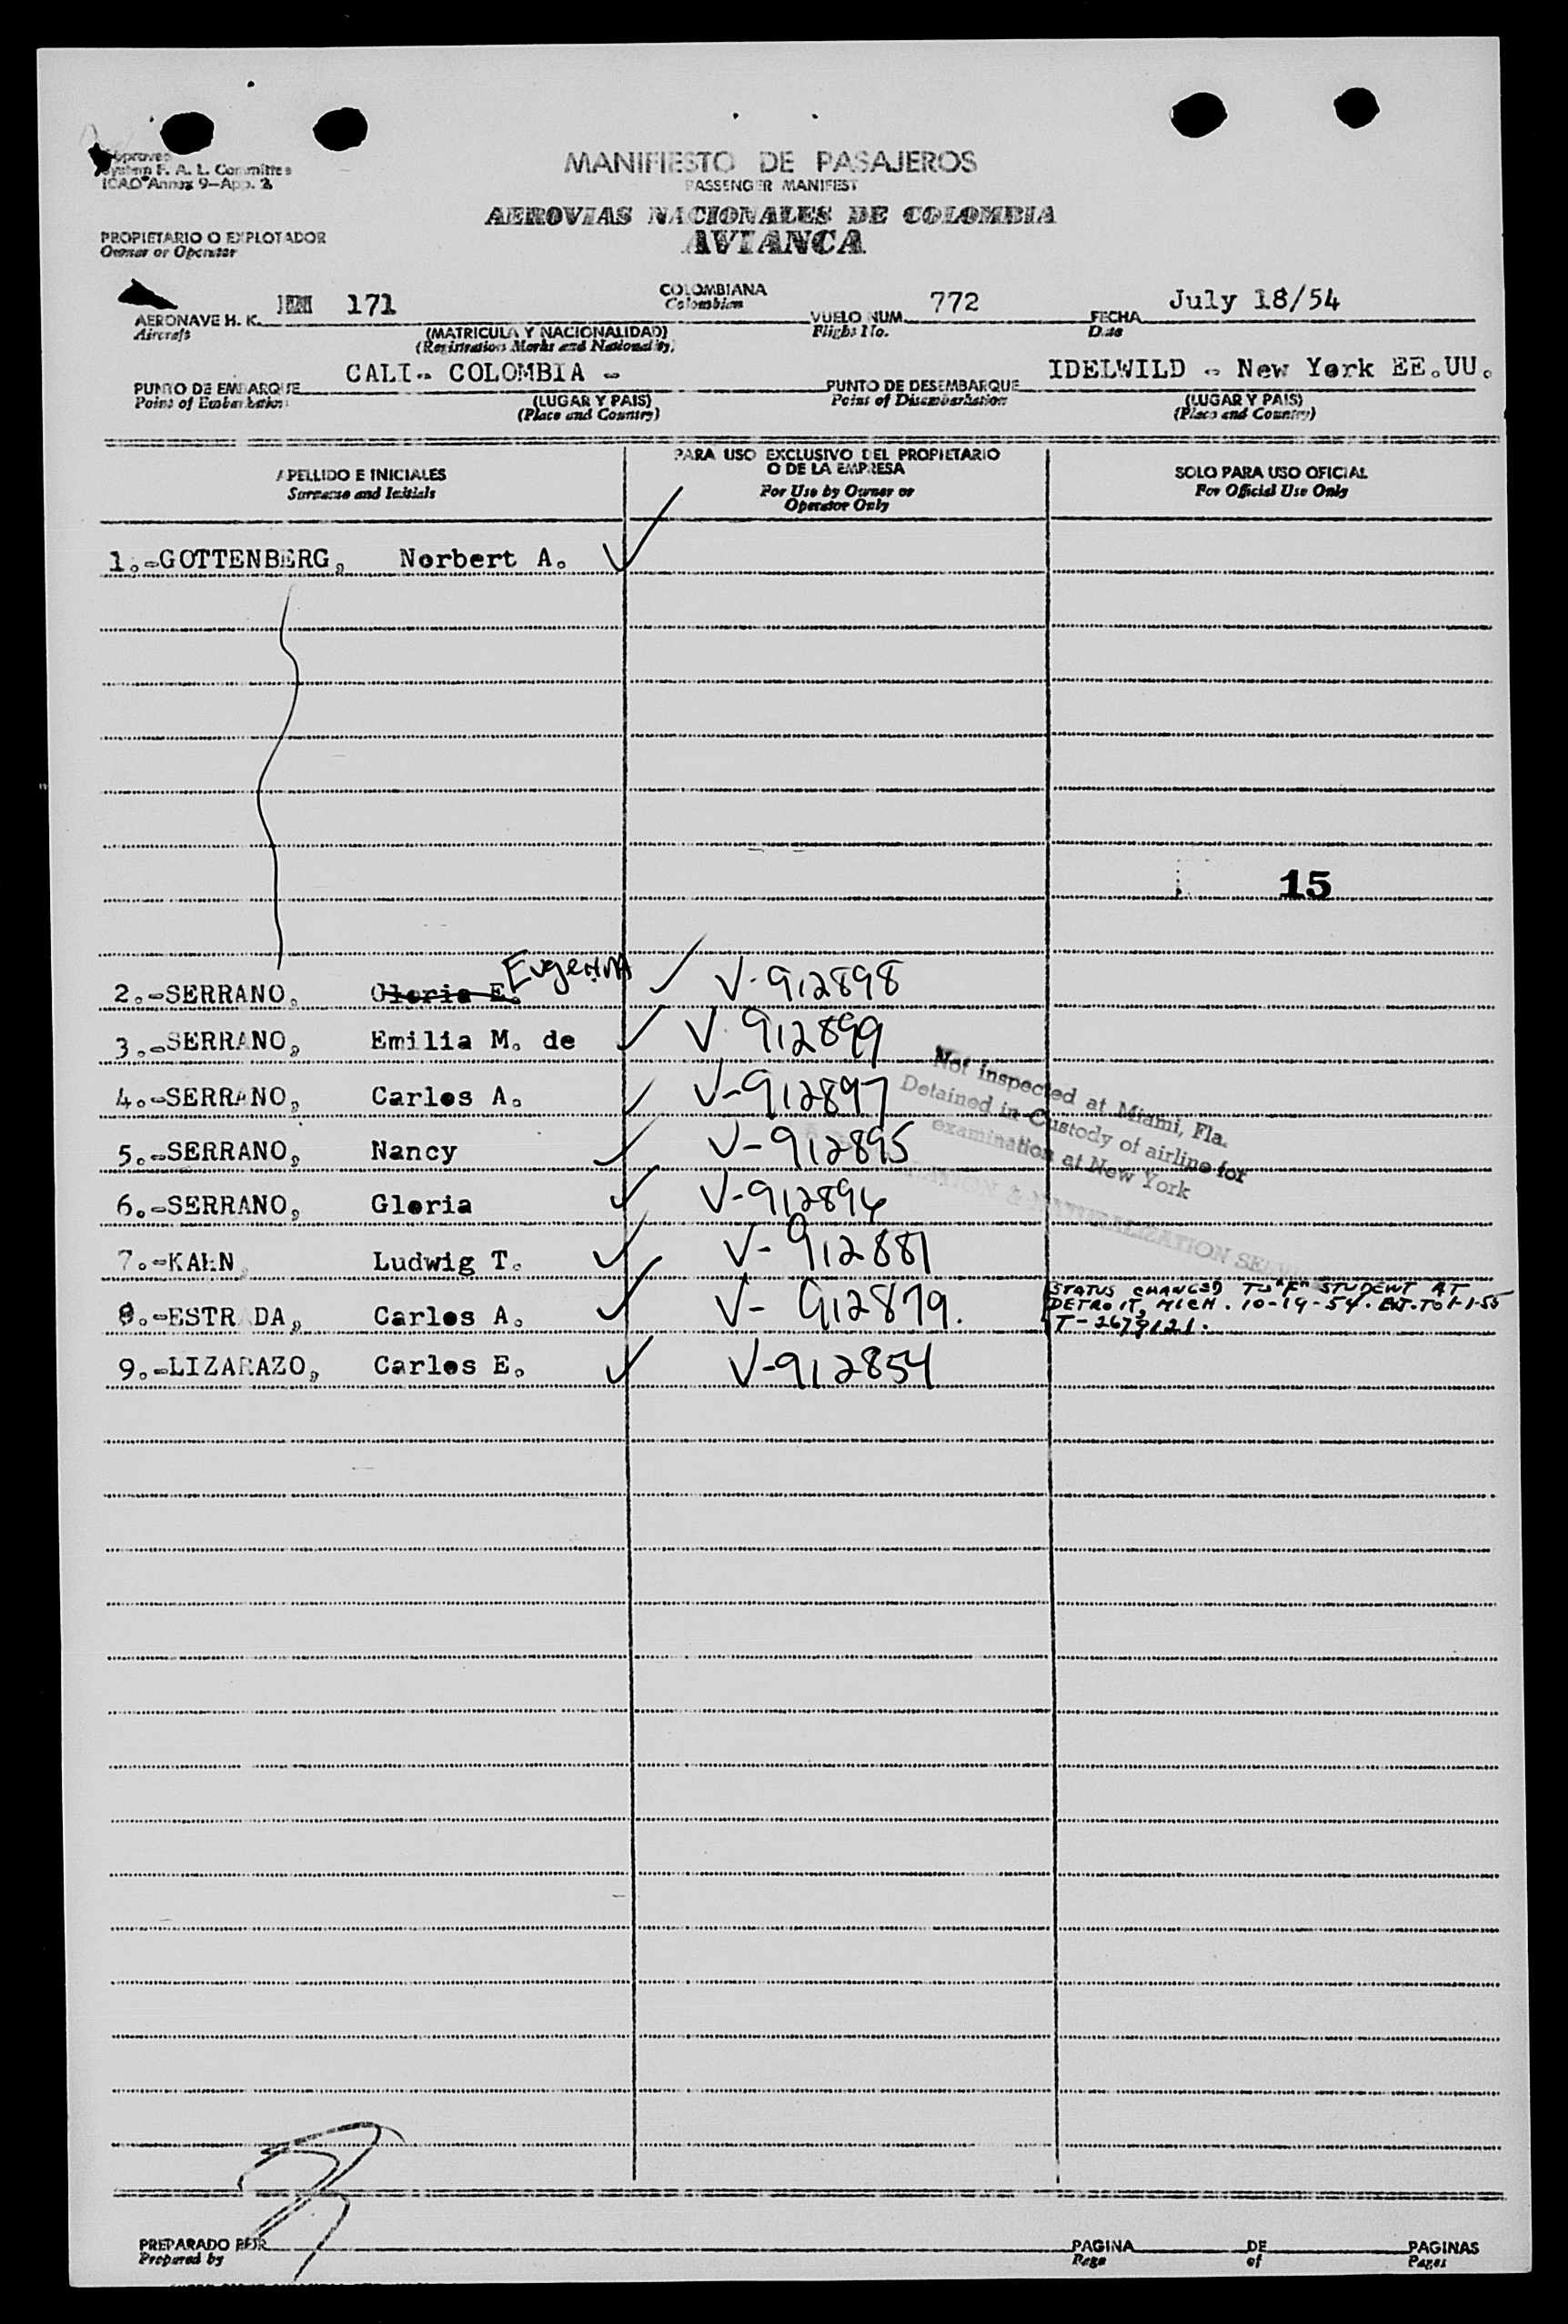 Approved
System F. A. L. Committee
ICAO Annex 9-App. 2
MANIFIESTO DE PASAJEROS
PASSENGER MANIFEST
AEROVIAS NACIONALES DE COLOMBIA
AVIANCA
PROPIETARIO O EXPLOTADOR
Owner or Operator
AERONAVE H. K. 171
Aircraft
(MATRICULA Y NACIONALIDAD)
(Registration Marks and Nationality)
COLOMBIANA
Colombian
VUELO NUM. 772
Flight No.
FECHA July 18/54
Date
PUNTO DE EMBARQUE CALI- COLOMBIA -
Point of Embarkation
(LUGAR Y PAIS)
(Place and Country)
PUNTO DE DESEMBARQUE IDELWILD - New York EE.UU.
Point of Disembarkation
(LUGAR Y PAIS)
(Place and Country)
APELLIDO E INICIALES
Surname and Initials
PARA USO EXCLUSIVO DEL PROPIETARIO
O DE LA EMPRESA
For Use by Owner or
Operator Only
SOLO PARA USO OFICIAL
For Official Use Only
1.-GOTTENBERG, Norbert A. ✓
15
Eugenia
2.-SERRANO, Gloria E. ✓ V-912898
3.-SERRANO, Emilia M. de ✓ V-912899
4.-SERRANO, Carlos A. ✓ V-912897
5.-SERRANO, Nancy ✓ V-912895
6.-SERRANO, Gloria ✓ V-912896
7.-KAHN, Ludwig T. ✓ V-912881
8.-ESTRADA, Carlos A. ✓ V-912879.
9.-LIZARAZO, Carlos E. ✓ V-912854
Not inspected at Miami, Fla.
Detained in Custody of airline for
examination at New York
& NATURALIZATION
STATUS CHANGED TO "F" STUDENT AT
DETROIT, MICH. 10-19-54. EXT. TO 1-1-55
T-2679121.
PREPARADO POR
Prepared by
PAGINA DE PAGINAS
Page of Pages